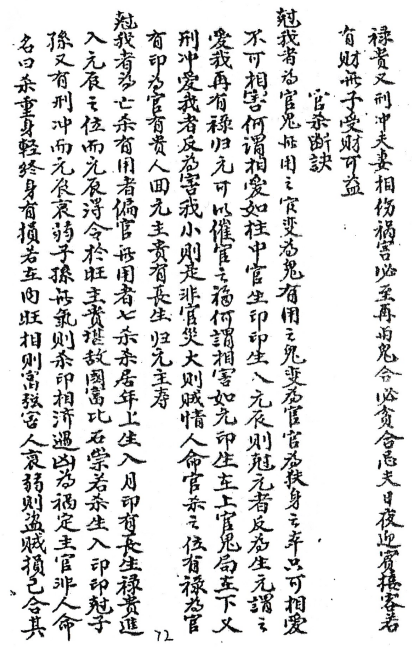 禄贵又刑冲夫妻相伤祸害必至再内鬼合必贪合忌夫日夜迎宾接客若
有财無子受财可益
官杀断诀
尅我者為官鬼無用之官变為鬼有用之鬼变為官官為扶身之本只可相爱
不可相害何謂相爱如柱中官生印印生入元辰则尅元者反為生元謂之
爱我再有禄归元可以催官之福何謂相害如元印生在上官鬼局在下又
刑冲爱我者反為害我小则是非官災大则贼情人命官杀之位有禄為官
有印為官有贵人回元主贵有長生归元主寿
尅我者為七杀有用者偏官無用者七杀杀居年上生入月印有長生禄贵進
入元辰之位而元辰得令於旺主贵堪敌國富比石崇若杀生入印印尅子
孫又有刑冲而元辰衰弱子孫無氣则杀印相济遇凶為禍定主官非人命
名曰杀重身輕終身有損若在内旺相则富强害人衰弱则盗贼損己合其
72